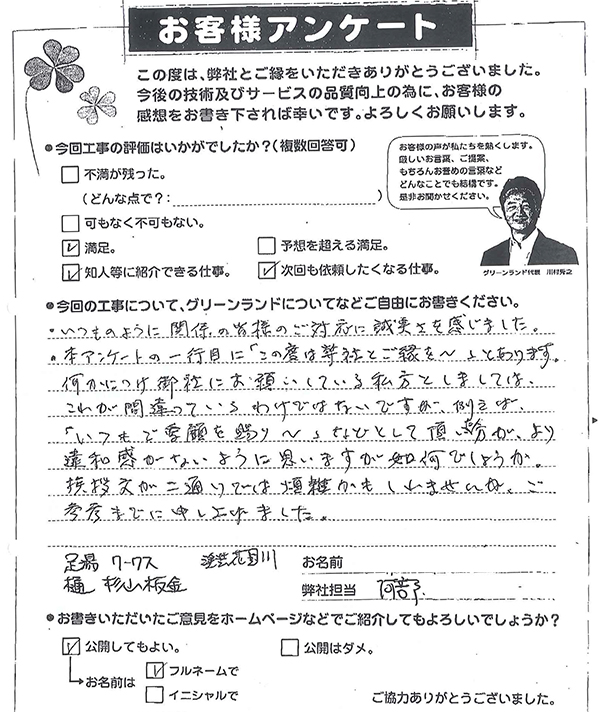 お客様アンケート
この度は、弊社とご縁をいただきありがとうございました。
今後の技術及びサービスの品質向上の為に、お客様の
感想をお書き下されば幸いです。よろしくお願いします。
●今回工事の評価はいかがでしたか?(複数回答可)
不満が残った。
(どんな点で?:
可もなく不可もない。
満足。
予想を超える満足。
知人等に紹介できる仕事。
次回も依頼したくなる仕事。
お客様の声が私たちを熱くします。
厳しいお言葉、ご提案、
もちろんお誉めの言葉など
どんなことでも結構です。
是非お聞かせください。
グリーンランド代表 川村秀之
●今回の工事について、グリーンランドについてなどご自由にお書きください。
・いつものように関係の皆様のご対応に誠実さを感じました。
●本アンケートの一行目に「この度は弊社とご縁を〜」とあります。
何かにつけ御社にお願いしている私方としましては、
これが間違っているわけではないですが、例えば、
「いつもご愛顧を賜り〜」などとして頂い方が、より
違和感がないように思いますが如何でしょうか。
挨拶文が二通りでは煩雑かもしれませんが、ご
参考までに申し上げました。
足場 ワークス
樋 杉山板金
お名前
弊社担当 阿部
●お書きいただいたご意見をホームページなどでご紹介してもよろしいでしょうか?
公開してもよい。
公開はダメ。
お名前は
フルネームで
イニシャルで
ご協力ありがとうございました。